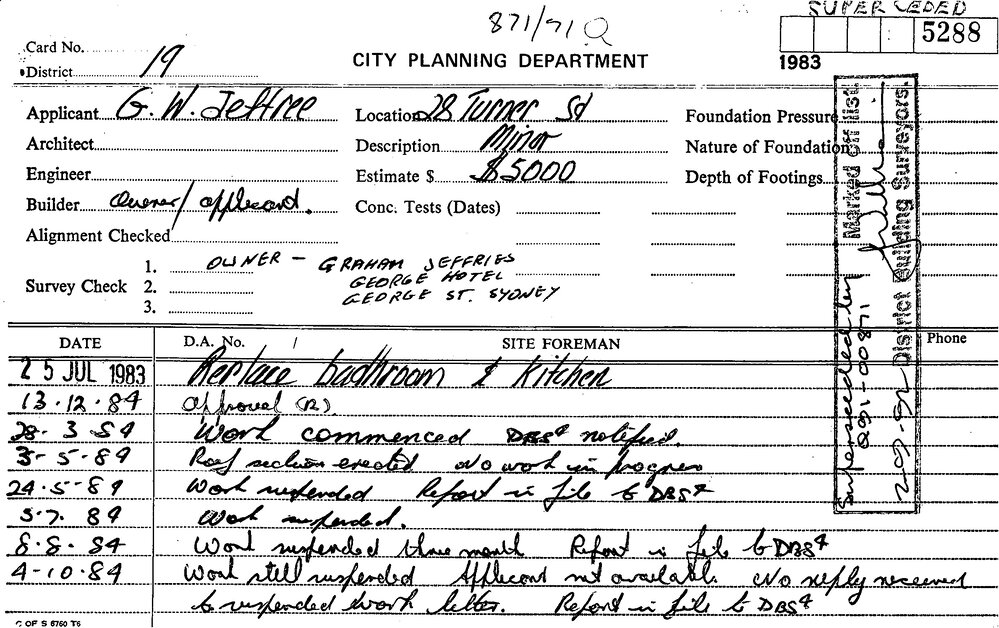 871/71Q
SUPERCEDED
5288
1983
Card No.
District 19
CITY PLANNING DEPARTMENT
Applicant G. W. Jeffree Location 28 Turner St Foundation Pressure
Architect Description Minor Nature of Foundation
Engineer Estimate $ $5000 Depth of Footings
Builder Owner/applicant. Conc. Tests (Dates)
Alignment Checked
Survey Check 1. OWNER - GRAHAM JEFFRIES
2. GEORGE HOTEL
3. GEORGE ST. SYDNEY
Marked off list.
District Building Surveyors.
Superseeded by
Q91-00871
DATE D.A. No. / SITE FOREMAN Phone
25 JUL 1983 Replace bathroom & Kitchen
13.12.84 Approval (R).
28. 3 84 Work commenced DBS4 notified.
3-5-84 Roof section erected No work in progress
24.5-84 Work suspended Report in file to DBS4
5.7. 84 Work suspended.
8.8. 84 Work suspended three month Report in file to DBS4
4-10.84 Work still suspended Applicant not available. No reply received
to suspended work letter. Report in file to DBS4
C OF S 6760 T6